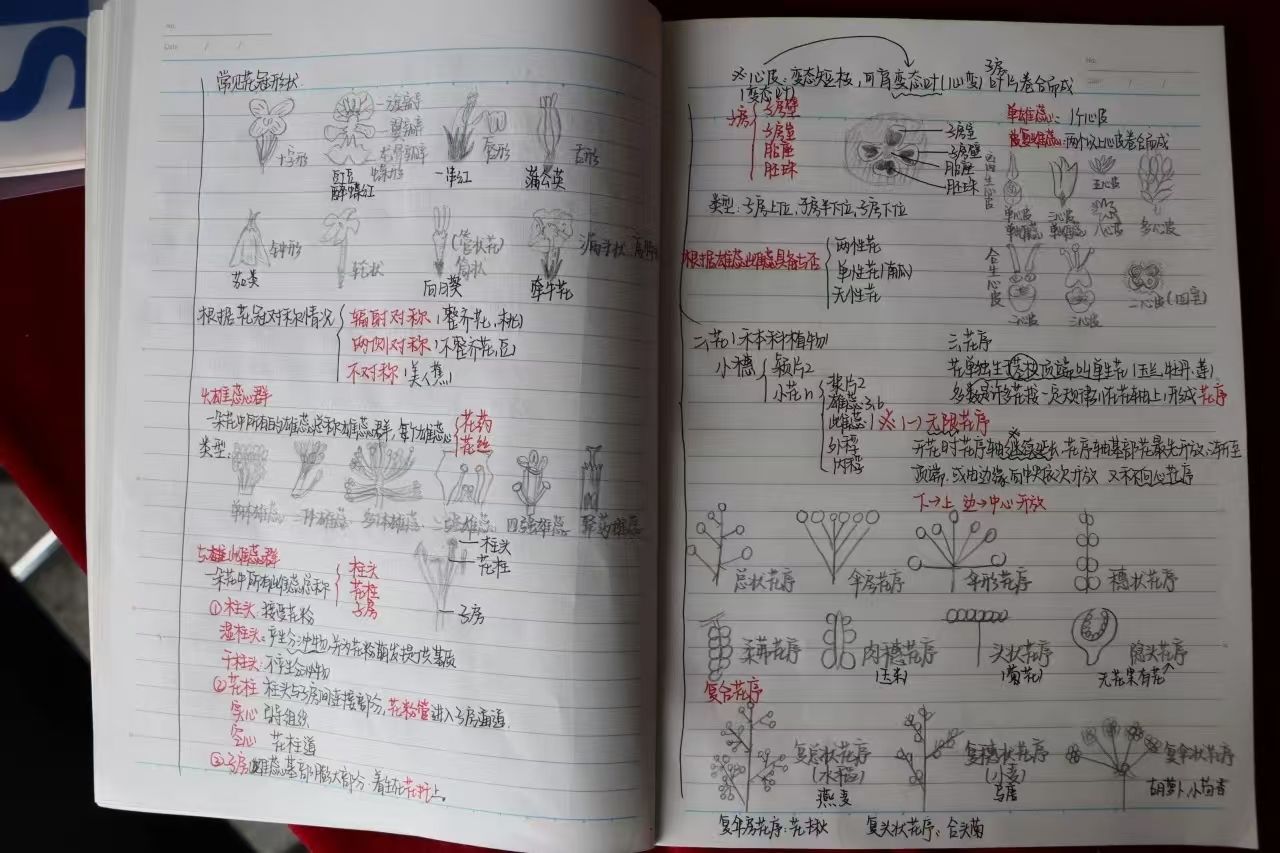 常见花冠形状
十字形
旗瓣
翼瓣
龙骨瓣
蝶形
豇豆
醉蝶红
唇形
一串红
舌形
蒲公英
钟形
茄类
轮状
(管状花)
筒状
向日葵
漏斗状
牵牛花
根据花冠对称情况
辐射对称(整齐花,桃)
两侧对称(不整齐花,豆)
不对称(美人蕉)
4.雄蕊群
一朵花中所有的雄蕊总称雄蕊群,每个雄蕊
花药
花丝
类型:
单体雄蕊 二体雄蕊 多体雄蕊 二强雄蕊 四强雄蕊 聚药雄蕊
5.雌蕊群
一朵花中所有雌蕊总称
柱头
花柱
子房
柱头
花柱
子房
①柱头 接受花粉
湿柱头:产生分泌物,并为花粉萌发提供基质
干柱头:不产生分泌物
②花柱 柱头与子房间连接部分,花粉管进入子房通道.
实心 引导组织
空心 花柱道
③子房 雌蕊基部膨大部分 着生在花托上。
No.
Date / /
※心皮:变态短枝,可育变态叶(心变)叶片卷合而成
子房
(变态叶)
子房
子房壁
子房室
胎座
胚珠
子房室
子房壁
胎座
胚珠
单雌蕊:1个心皮
复雌蕊:两个以上心皮卷合而成
离生心皮
单心皮
单雌蕊
三心皮
五心皮
八心皮
多心皮
类型:子房上位,子房半下位,子房下位
根据雄蕊雌蕊具备与否
两性花
单性花(南瓜)
无性花
合生心皮
二心皮
三心皮
二心皮(四室)
二、花(禾本科植物)
小穗
颖片2
小花n
浆片2
雄蕊3,6
雌蕊1
外稃
内稃
三、花序
花单独生于茎枝顶端叫单生花(玉兰,牡丹,莲)
多数是许多花按一定规律排在花轴上,形成花序
※(一)无限花序
开花时花序轴继续延长 花序轴基部花最先开放,渐至
顶端.或由边缘向中央依次开放 又称向心花序
下→上 边→中心开放
总状花序 伞房花序 伞形花序 穗状花序
柔荑花序 肉穗花序 头状花序 隐头花序
(玉米) (菊花) 无花果有花
复合花序
复总状花序
(水稻)
燕麦
复穗状花序
(小麦)
马唐
复伞状花序
胡萝卜,小茴香
复伞房花序:花楸 复头状花序:合头菊